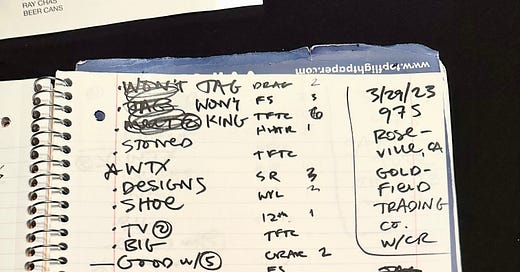 RAY CHAS
BEER CANS
www.topflightpaper.com
WON'T TAG DRAG 2
WON'T FS 3
KING TFTC 6
STONED HHAIR 1
WTX TFTC
DESIGNS SR 3
SHOE WYL 2
TV 2 12th 1
BIG TFTC
GOOD W/5 2
FS
3/29/23
975
ROSE-
VILLE, CA
GOLD-
FIELD
TRADING
CO.
W/CR